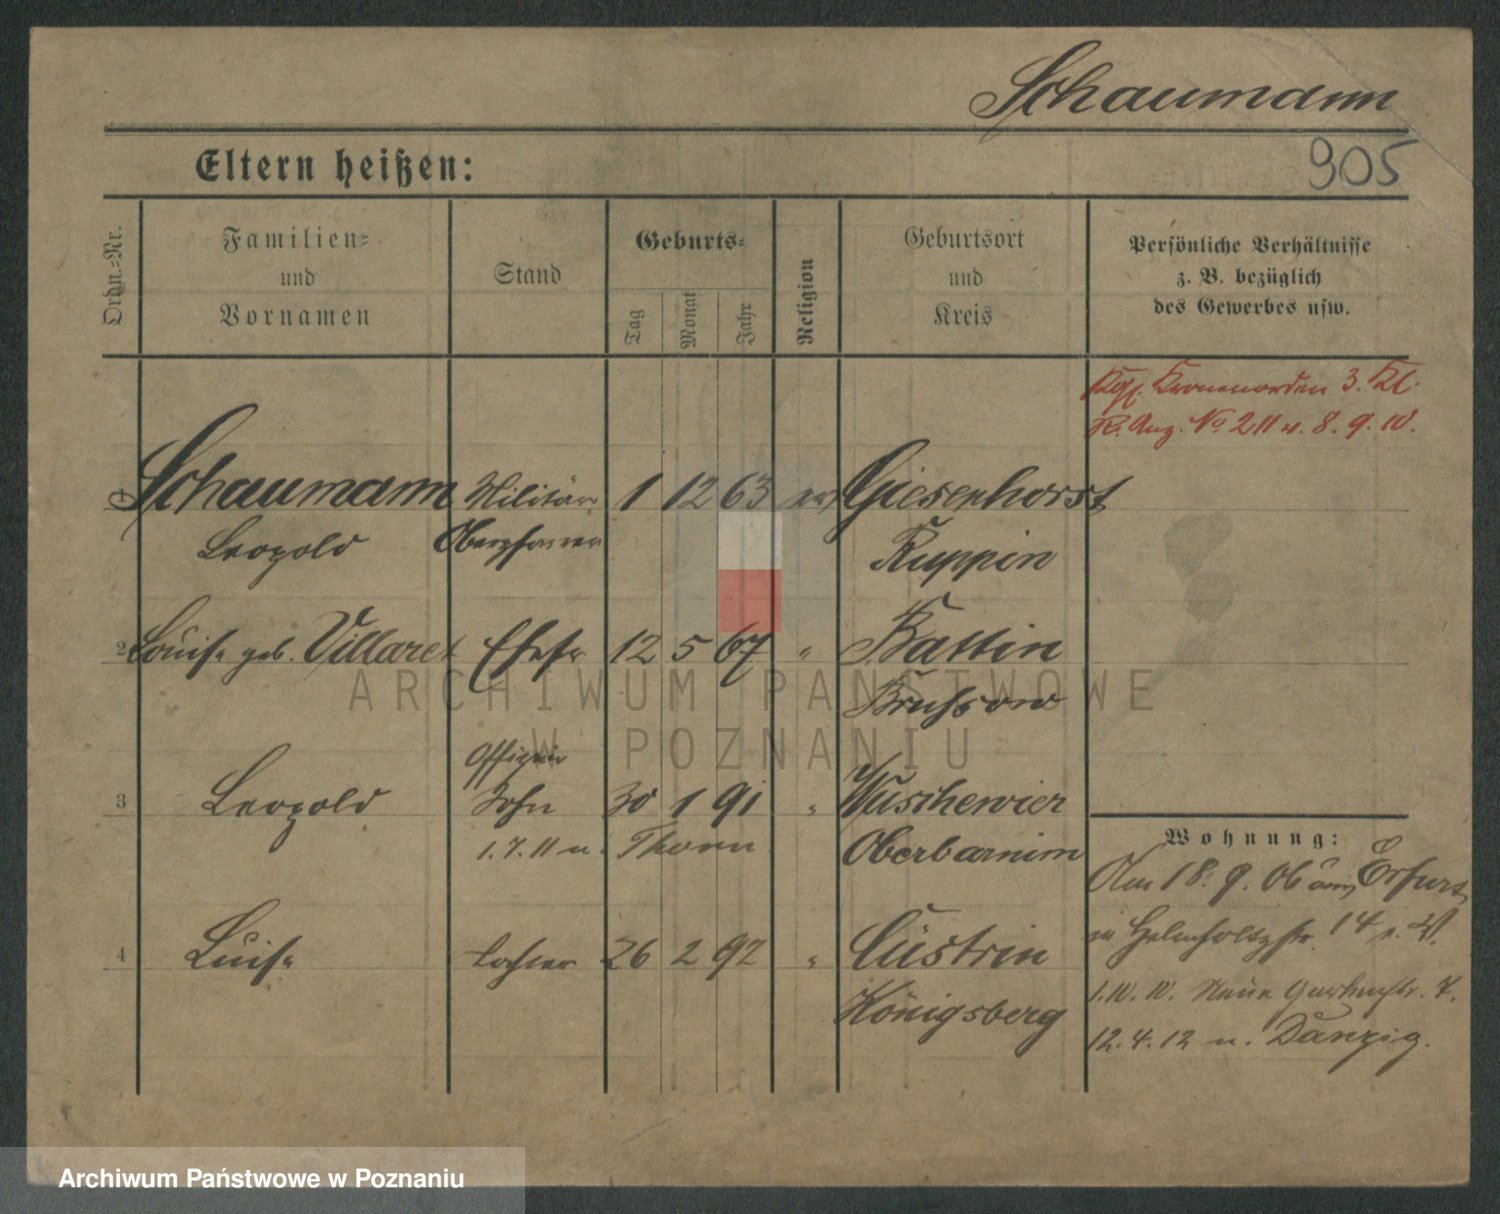 Schaumann
905
Eltern heißen:
Ordn.-Nr.
Familien-
und
Vornamen
Stand
Geburts-
Tag
Monat
Jahr
Religion
Geburtsort
und
Kreis
Persönliche Verhältnisse
z. B. bezüglich
des Gewerbes usw.
Kgl. Kronenorden 3. Kl.
R. Anz. No 211 v. 8. 9. 10.
1 Schaumann Militär 1 12 63 ev Giesenhorst
Leopold Oberpfarrer Ruppin
2 Louise geb. Villaret Ehefr 12 5 67 " Battin
Brüssow
Offizier
3 Leopold Sohn 30 1 91 " Wuschewier
1. 7. 11 n. Thorn Oberbarnim
4 Luise Tochter 26 2 92 " Cüstrin
Königsberg
Wohnung:
Am 18. 9. 06 Erfurt
in Helmholtzstr. 14
1. 10. 10. Neue Gartenstr. 7.
12. 4. 12 n. Danzig.
ARCHIWUM PAŃSTWOWE
W POZNANIU
Archiwum Państwowe w Poznaniu